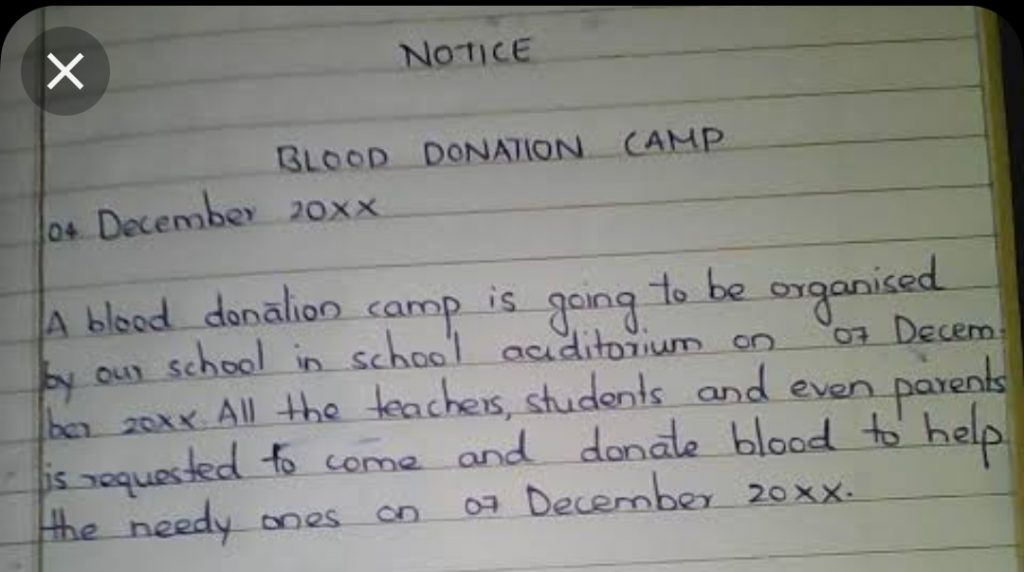 NOTICE
BLOOD DONATION CAMP
04 December 20XX
A blood donation camp is going to be organised
by our school in school auditorium on 07 Decem-
ber 20XX. All the teachers, students and even parents
is requested to come and donate blood to help
the needy ones on 07 December 20XX.